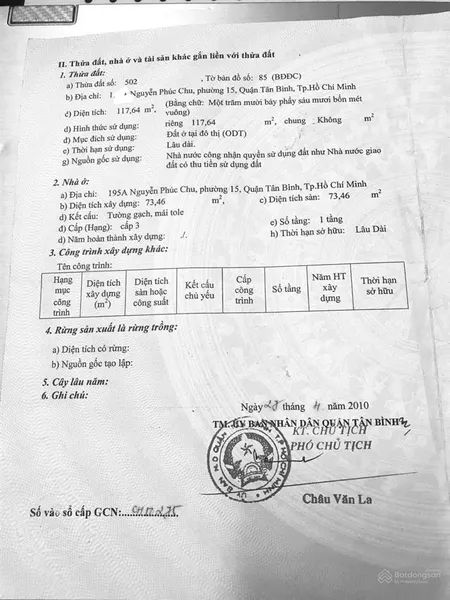 II. Thửa đất, nhà ở và tài sản khác gắn liền với thửa đất
1. Thửa đất:
a) Thửa đất số: 502 , Tờ bản đồ số: 85 (BĐĐC)
b) Địa chỉ: 1 Nguyễn Phúc Chu, phường 15, Quận Tân Bình, Tp.Hồ Chí Minh
c) Diện tích: 117,64 m², (Bằng chữ: Một trăm mười bảy phẩy sáu mươi bốn mét vuông)
d) Hình thức sử dụng: riêng 117,64 m², chung Không m²
đ) Mục đích sử dụng: Đất ở tại đô thị (ODT)
e) Thời hạn sử dụng: Lâu dài.
g) Nguồn gốc sử dụng: Nhà nước công nhận quyền sử dụng đất như Nhà nước giao
đất có thu tiền sử dụng đất
2. Nhà ở:
a) Địa chỉ: 195A Nguyễn Phúc Chu, phường 15, Quận Tân Bình, Tp.Hồ Chí Minh
b) Diện tích xây dựng: 73,46 m², c) Diện tích sàn: 73,46 m²
d) Kết cấu: Tường gạch, mái tole
đ) Cấp (Hạng): cấp 3 e) Số tầng: 1 tầng
d) Năm hoàn thành xây dựng: h) Thời hạn sở hữu: Lâu Dài
3. Công trình xây dựng khác:
Tên công trình:
Hạng mục công trình
Diện tích xây dựng (m²)
Diện tích sàn hoặc công suất
Kết cấu chủ yếu
Cấp công trình
Số tầng
Năm HT xây dựng
Thời hạn sở hữu
4. Rừng sản xuất là rừng trồng:
a) Diện tích có rừng:
b) Nguồn gốc tạo lập:
5. Cây lâu năm:
6. Ghi chú:
Ngày tháng 4 năm 2010
TM. ỦY BAN NHÂN DÂN QUẬN TÂN BÌNH
KT. CHỦ TỊCH
PHÓ CHỦ TỊCH
Châu Văn La
Số vào sổ cấp GCN:
Batdongsan